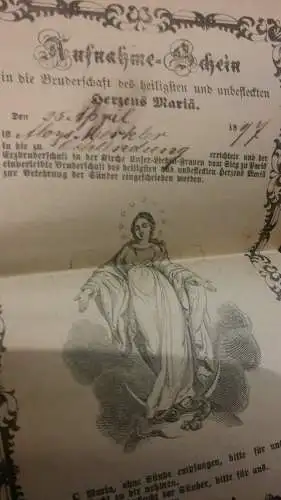 Aufnahme-Schein
in die Bruderschaft des heiligsten und unbefleckten
Herzens Mariä.
Den 25. April 1897
ist Aloys
in die zu errichtete und der
Erzbruderschaft in der Kirche Unser-Lieben-Frauen vom Sieg zu Paris
einverleibte Bruderschaft des heiligsten und unbefleckten Herzens Mariä
zur Bekehrung der Sünder eingeschrieben worden.
O Maria, ohne Sünde empfangen, bitte für uns
die wir zu dir nehmen.
der Sünder, bitte für uns.